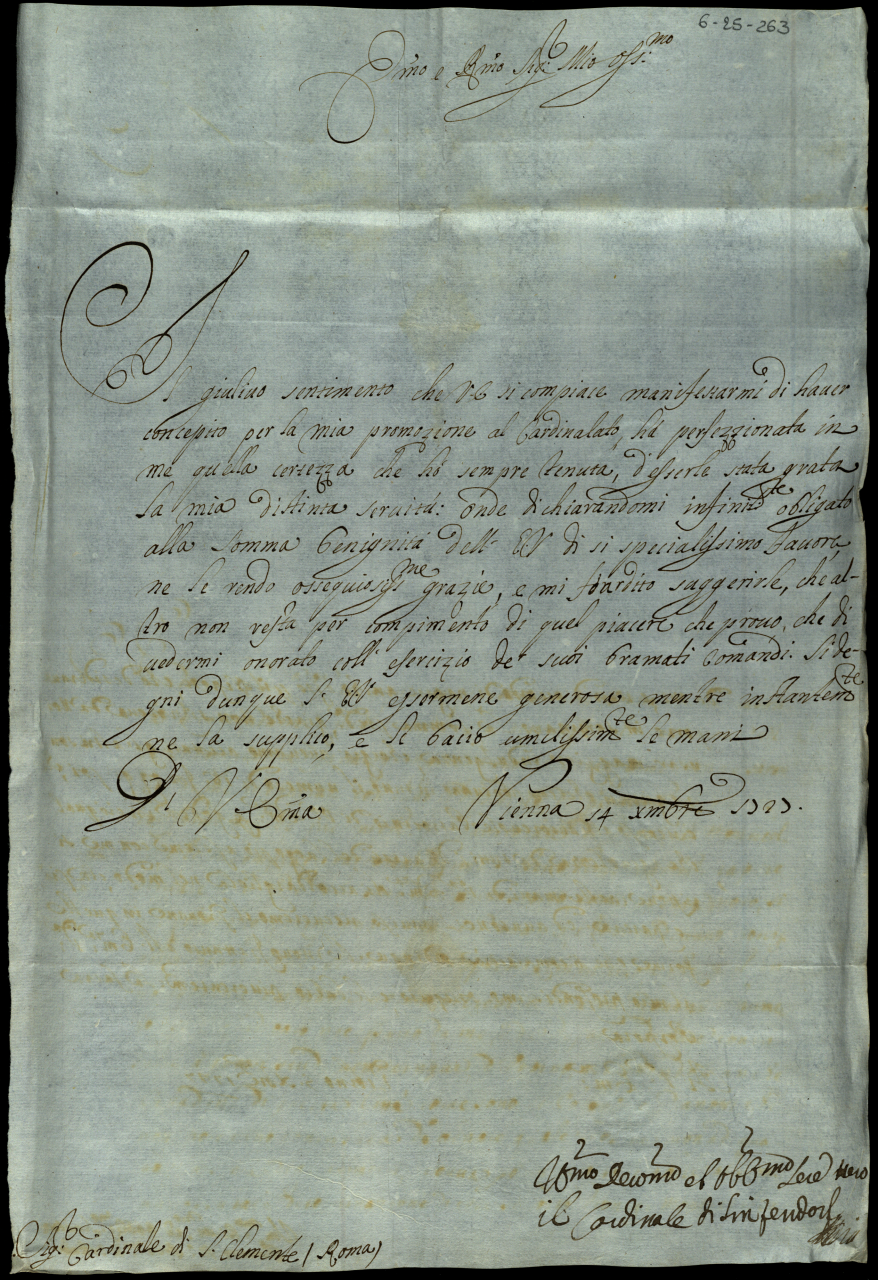 6-25-263
Emo e Rmo Sig.r Mio Oss.mo
Il giulivo sentimento che V.E. si compiace manifestarmi di haver
concepito per la mia promozione al Cardinalato, hà perfezzionata in
me quella certezza che hò sempre tenuta, d'esserle stata grata
la mia distinta servitù: onde dichiarandomi infinit.te obligato
alla somma benignità dell' E.V. di si specialissimo favore,
ne le rendo ossequiosiss.me grazie, e mi fò ardito suggerirle, che al-
tro non resta per compimento di quel piacere che provo, che di
vedermi onorato coll' esercizio de' suoi bramati comandi. Si de-
gni dunque l' E.V. essermene generosa mentre instantem.te
ne la supplico, e le bacio umilissim.te le mani
Di V. Em̃a Vienna 14 xmbre 1727.
Um̃o Devom̃o et Obbm̃o Ser vero
il Cardinale di Sinzendorf
Sig.r Cardinale di S. Clemente (Roma)